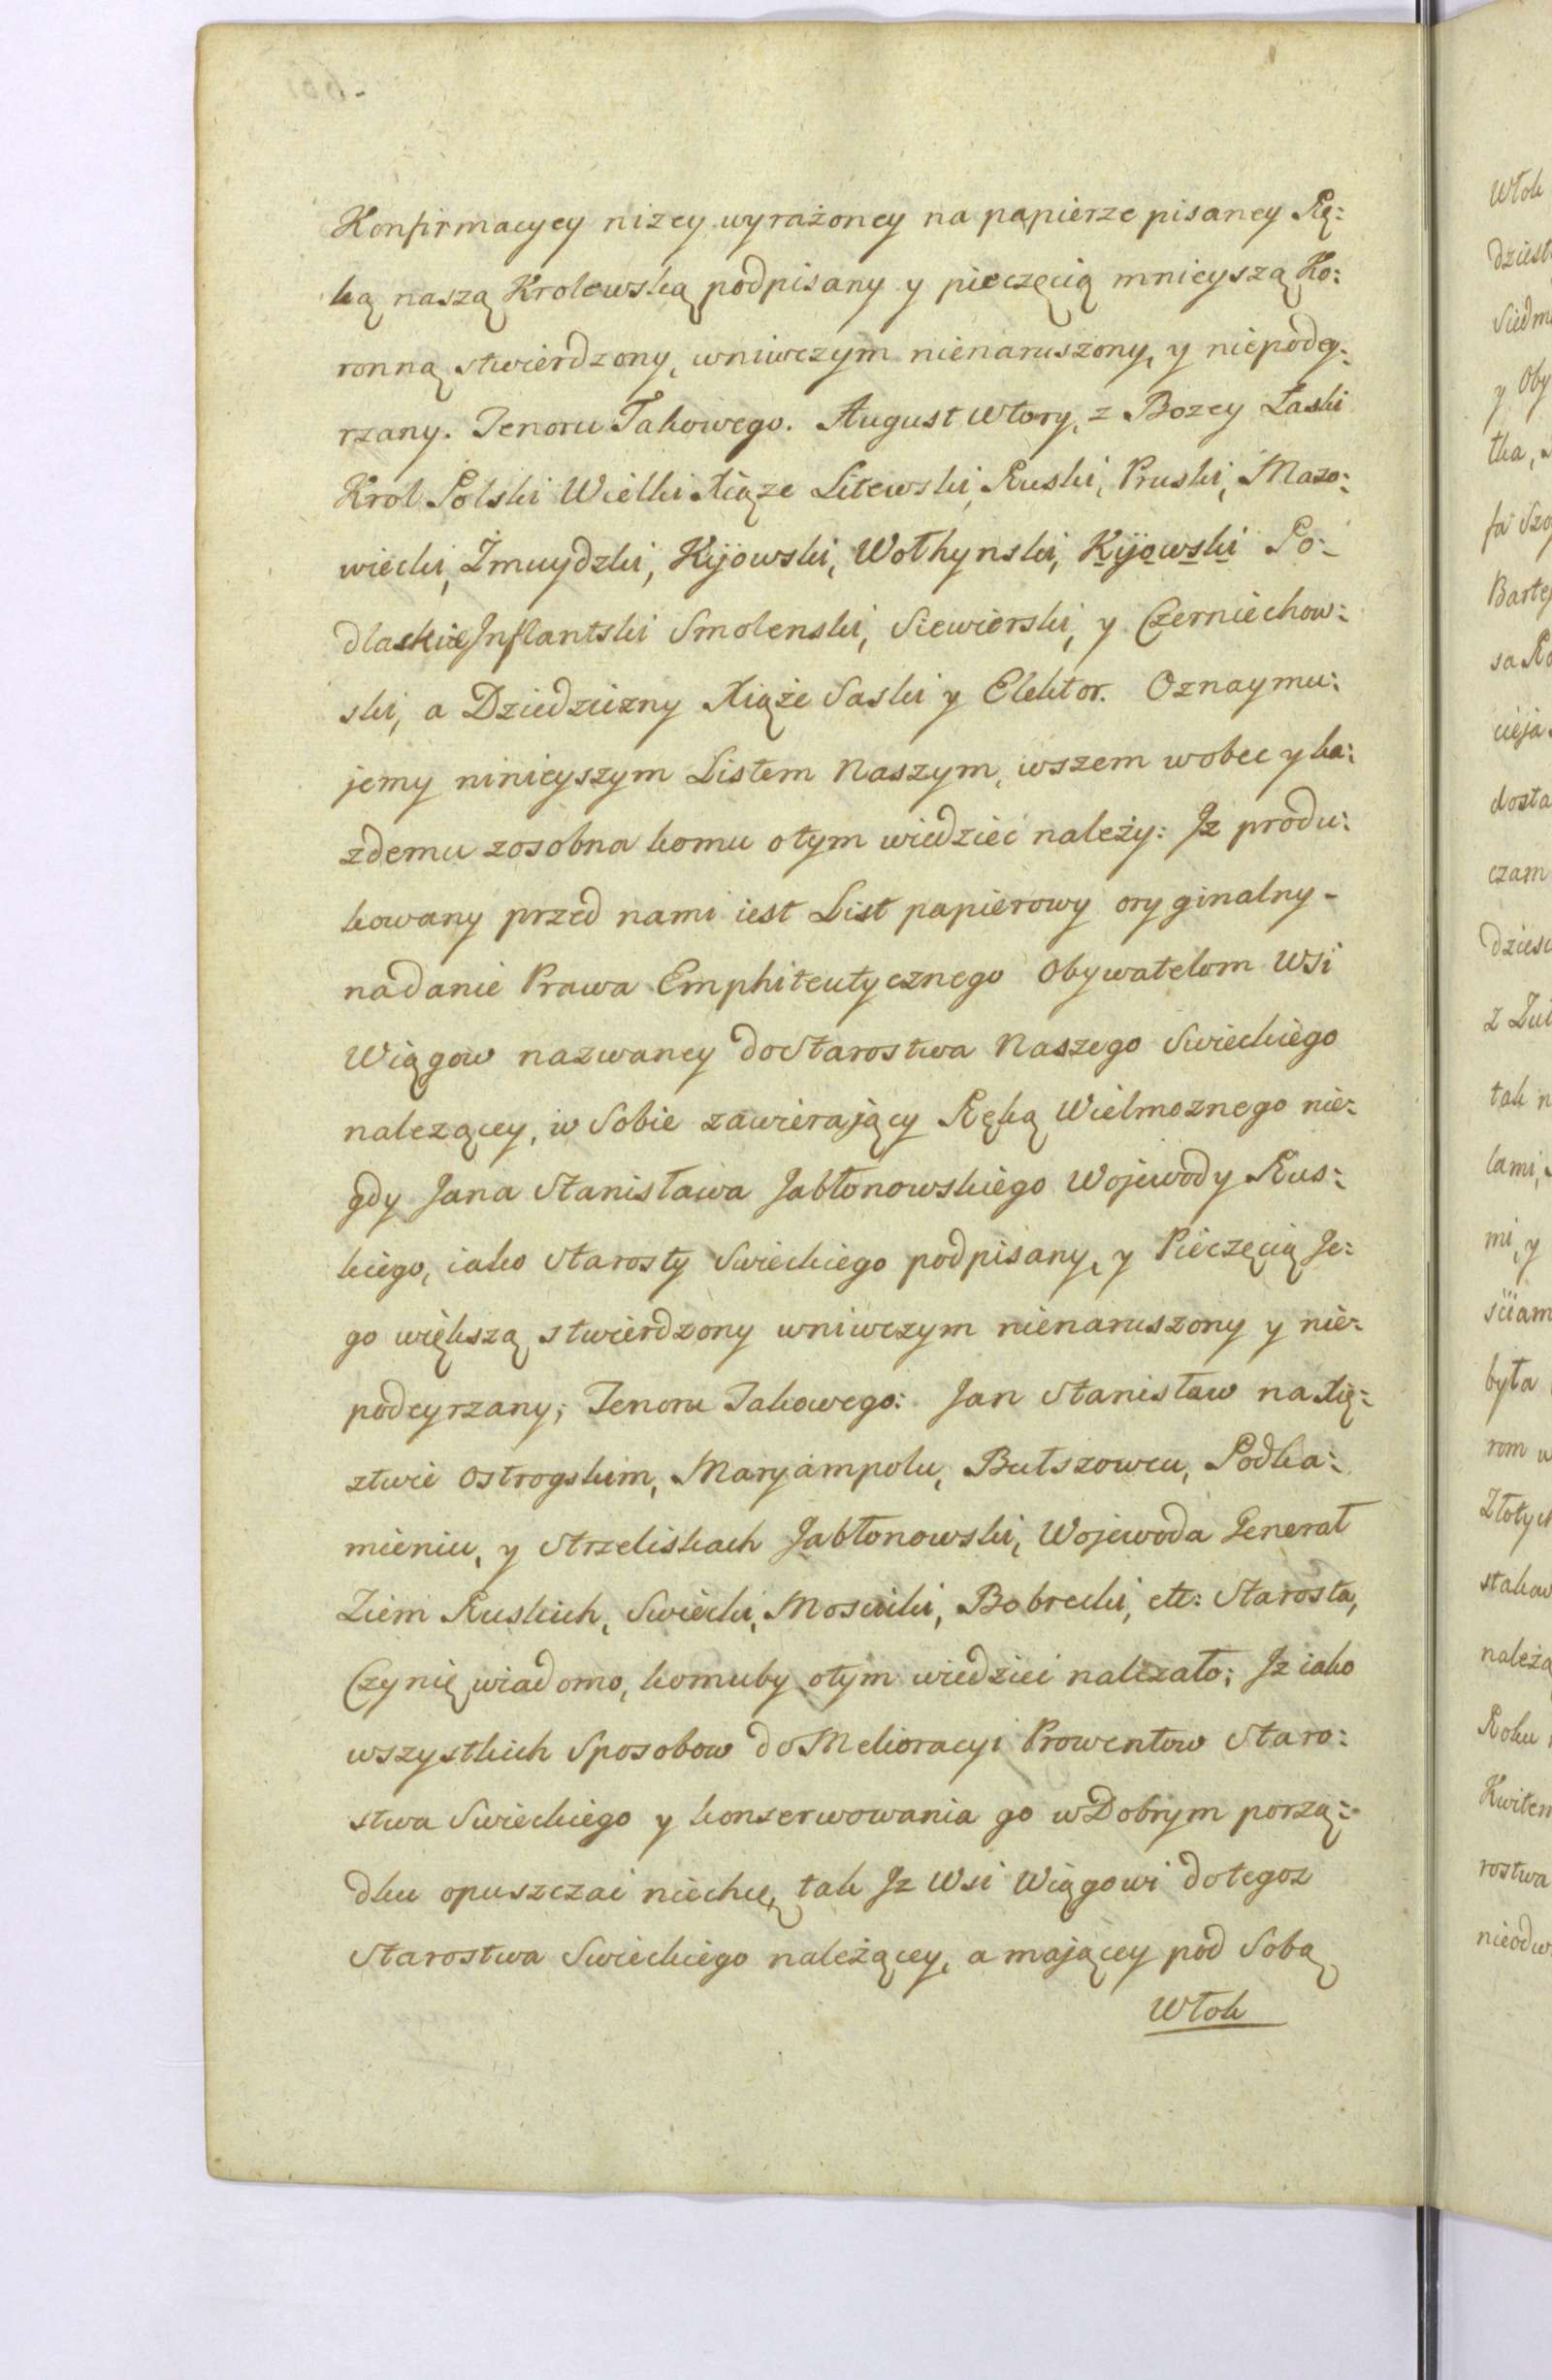 Konfirmacyey nizey wyrażoney na papierze pisaney Rę:
ką naszą Krolewską podpisany y pieczęcią mnieyszą Ko:
ronną stwierdzony, wniwczym nienaruszony, y niepodey:
rzany. Tenoru Takowego. August wtory, z Bozey Łaski
Krol Polski Wielki Xiąze Litewski, Ruski, Pruski, Mazo:
wiecki, Żmuydzki, Kijowski, Wołhynski, Kijowski Po:
dlaskie Inflantski Smolenski, Siewierski, y Czerniechow:
ski, a Dziedziczny Xiąże Saski y Elektor. Oznaymu:
jemy ninieyszym Listem Naszym, wszem wobec y ka:
zdemu zosobna komu otym wiedzieć należy: Iz produ:
kowany przed nami iest List papierowy oryginalny -
nadanie Prawa Emphiteutycznego Obywatelom Wsi
Wiągow nazwaney do Starostwa Naszego Swieckiego
nalezącey, w Sobie zawierający Ręką Wielmoznego nie:
gdy Jana Stanisława Jabłonowskiego Wojewody Rus:
kiego, iako Starosty Swieckiego podpisany, y Pieczęcią Je:
go większą stwierdzony wniwczym nienaruszony y nie:
podeyrzany; Tenoru Takowego: Jan Stanisław na Xię:
ztwie Ostrogskim, Maryampolu, Butszowcu, Podka:
mieniu, y Strzeliskach Jabłonowski, Wojewoda Generał
Ziem Ruskich, Swiecki, Moscicki, Bobrecki, etc: Starosta,
Czynię wiadomo, komuby otym wiedziei nalezało; Iz iako
wszystkich Sposobow do Melioracyi Prowentow Staro:
stwa Swieckiego y konserwowania go w Dobrym porzą:
dku opuszczai niechcę, tak Iz Wsi Wiągowi dotegoz
Starostwa Swieckiego należącey, a mającey pod Sobą
Włok